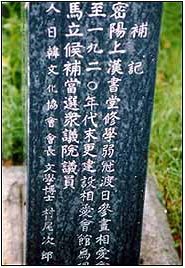 補記
密陽上漢書堂修學弱冠渡日參畫相愛會
至一九二〇年代末更建設相愛會館爲
馬立候補當選衆議院議員
人 日韓文化協會會長 文學博士 村尾次郎